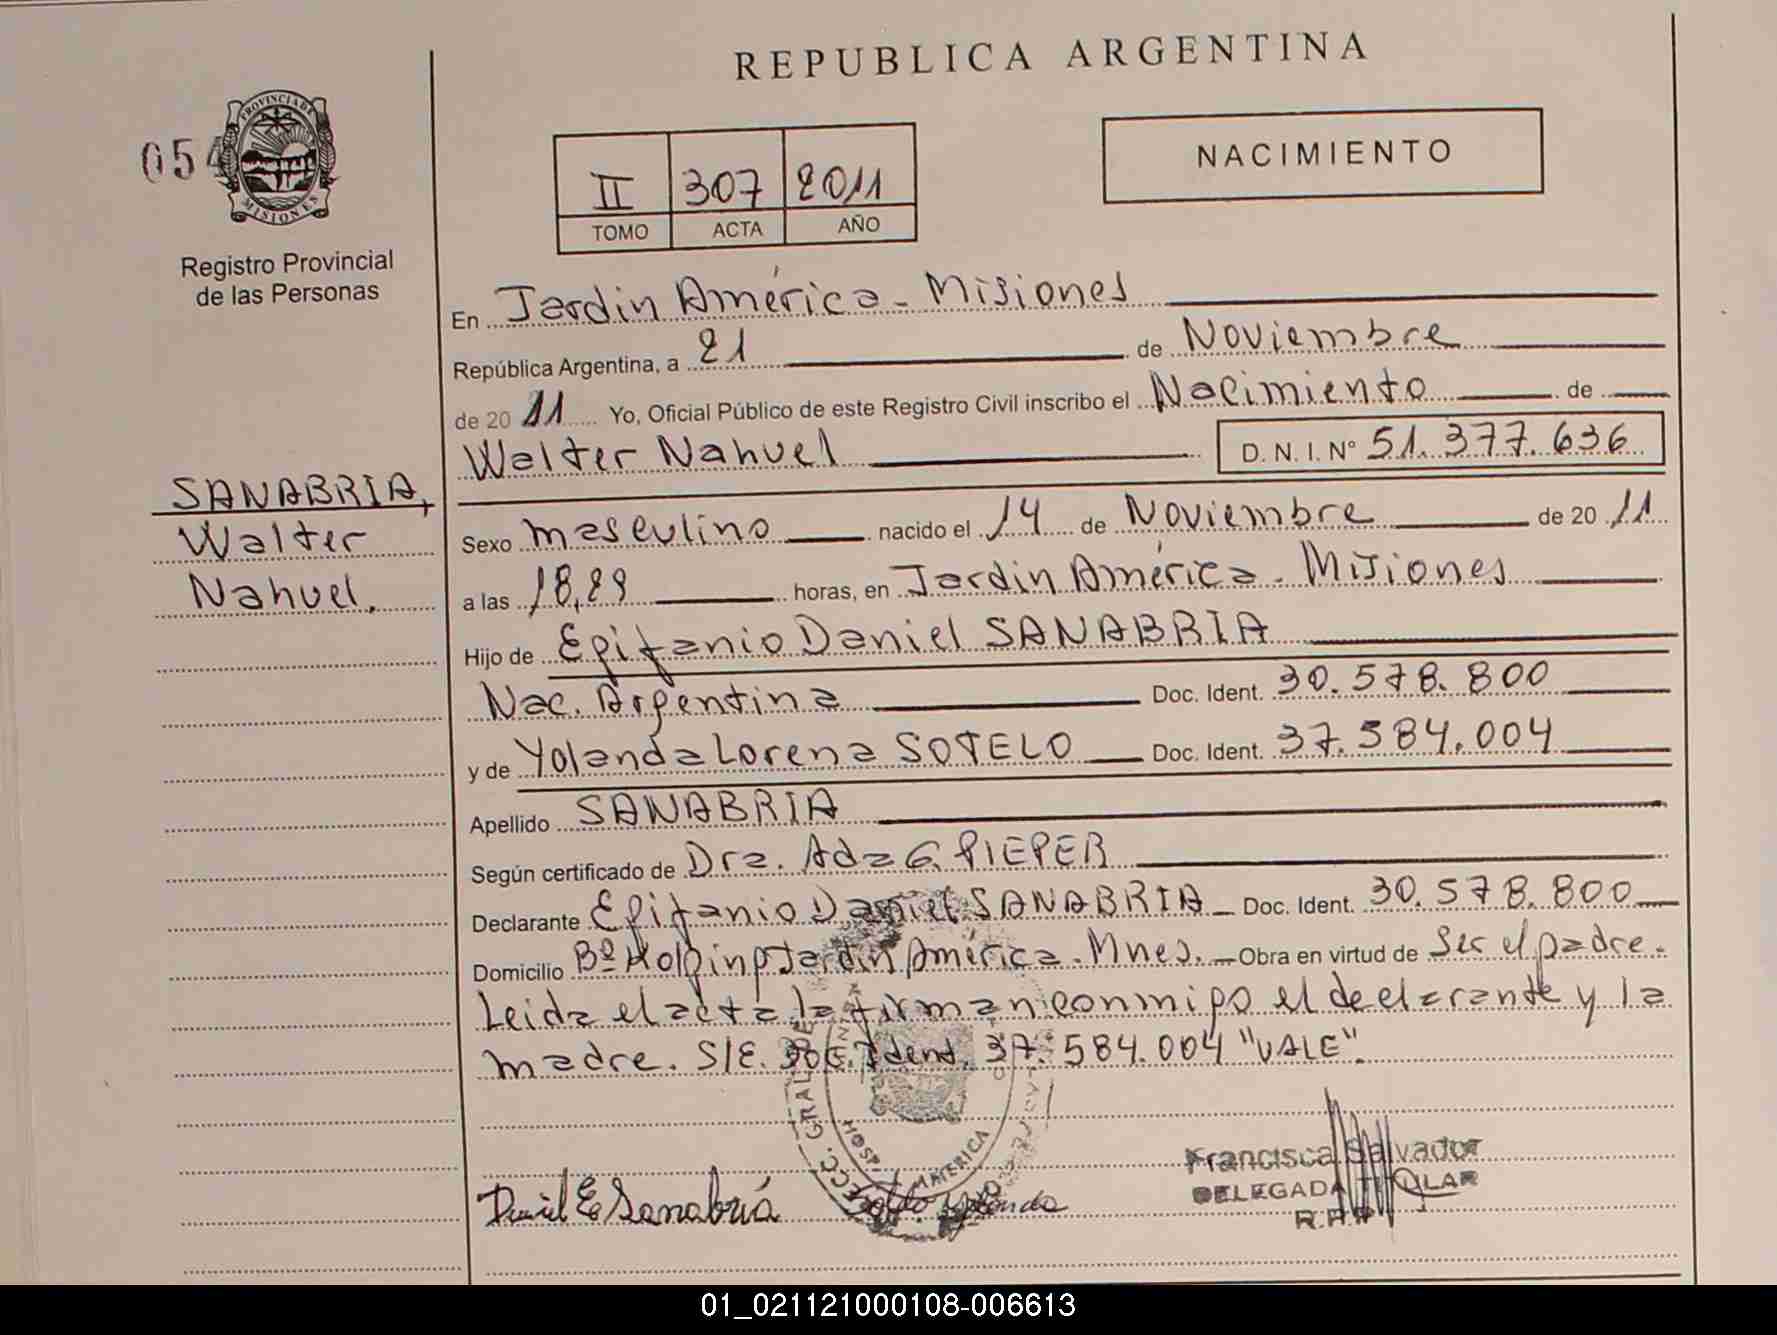 REPUBLICA ARGENTINA
054
PROVINCIA DE
MISIONES
Registro Provincial
de las Personas
II 307 2011
TOMO ACTA AÑO
NACIMIENTO
En Jardin América - Misiones
República Argentina, a 21 de Noviembre
de 2011 Yo, Oficial Público de este Registro Civil inscribo el Nacimiento de
Walter Nahuel D. N. I. Nº 51.377.636
SANABRIA,
Walter
Nahuel.
Sexo masculino nacido el 14 de Noviembre de 2011
a las 18,29 horas, en Jardin América - Misiones
Hijo de Epifanio Daniel SANABRIA
Nac. Argentina Doc. Ident. 30.578.800
y de Yolanda Lorena SOTELO Doc. Ident. 37.584.004
Apellido SANABRIA
Según certificado de Dra. Ada G. PIEPER
Declarante Epifanio Daniel SANABRIA Doc. Ident. 30.578.800
Domicilio Bº Jardin América. Mnes. Obra en virtud de Ser el padre.
Leida el acta la firman conmigo el declarante y la
madre. S/E. Doc. Ident. 37.584.004 "VALE".
GRAL
HOSP.
AMERICA
Daniel E Sanabria
Francisca Salvador
DELEGADA TITULAR
R.P.P
01_021121000108-006613